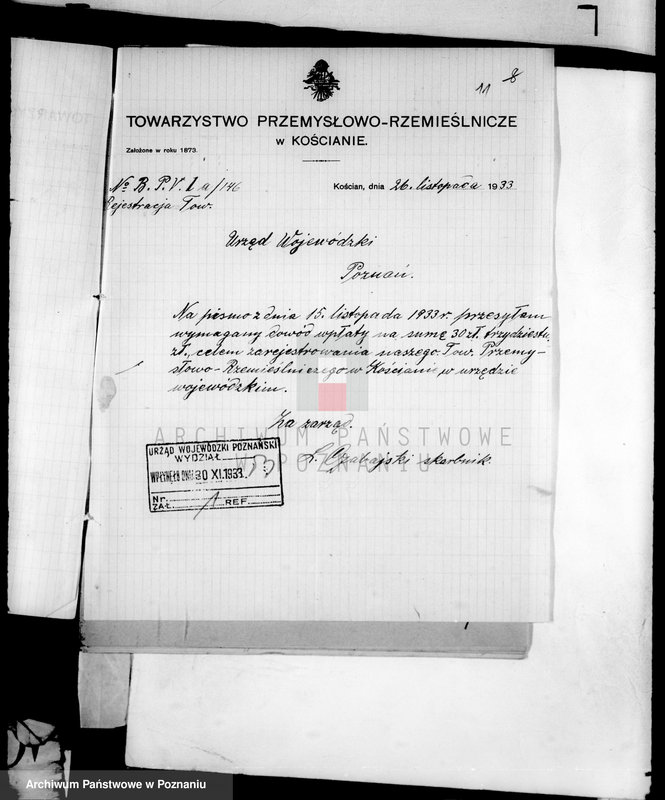 11 8
TOWARZYSTWO PRZEMYSŁOWO-RZEMIEŚLNICZE
w KOŚCIANIE.
Założone w roku 1873.
No B.P.V. I a/146
Rejestracja Tow.
Kościan, dnia 26. listopada 1933
Urząd Wojewódzki
Poznań.
Na pismo z dnia 15. listopada 1933 r. przesyłam
wymagany dowód wpłaty na sumę 30 zł. trzydzieści
zł., celem zarejestrowania naszego Tow. Przemy-
słowo-Rzemieślniczego w Kościanie w urzędzie
wojewódzkim.
Za zarząd.
skarbnik.
URZĄD WOJEWÓDZKI POZNAŃSKI
WYDZIAŁ
WPŁYNĘŁO DNIA 30 XI. 1933
Nr.
ZAŁ. 1 REF.
ARCHIWUM PAŃSTWOWE
W POZNANIU
Archiwum Państwowe w Poznaniu